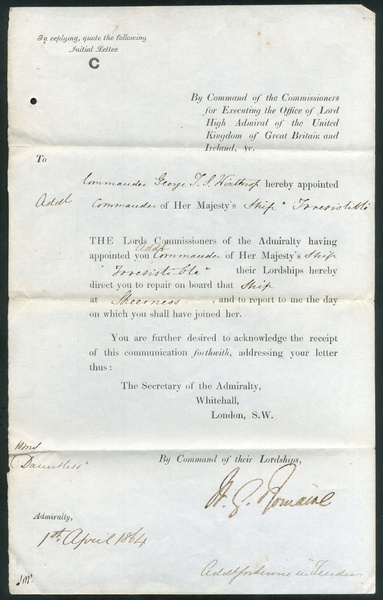 In replying, quote the following
Initial Letter
C
By Command of the Commissioners
for Executing the Office of Lord
High Admiral of the United
Kingdom of Great Britain and
Ireland, &c.
To
Commander George T. S. Winthrop hereby appointed
Addl Commander of Her Majesty's Ship "Irresistible"
THE Lords Commissioners of the Admiralty having
Addl
appointed you Commander of Her Majesty's Ship
"Irresistible" their Lordships hereby
direct you to repair on board that Ship
at Sheerness, and to report to me the day
on which you shall have joined her.
You are further desired to acknowledge the receipt
of this communication forthwith, addressing your letter
thus:
The Secretary of the Admiralty,
Whitehall,
London, S.W.
By Command of their Lordships,
Dauntless
W. G. Romaine
Admiralty,
1st April 1864
Addl for service in Tender